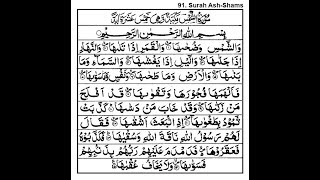 91. Surah Ash-Shams
بِسْمِ اللّٰهِ الرَّحْمٰنِ الرَّحِيْمِ
وَالشَّمْسِ وَضُحٰىهَا وَالْقَمَرِ اِذَا تَلٰىهَا وَالنَّهَارِ
اِذَا جَلّٰىهَا وَالَّيْلِ اِذَا يَغْشٰىهَا وَالسَّمَآءِ وَمَا
بَنٰىهَا وَالْاَرْضِ وَمَا طَحٰىهَا وَنَفْسٍ وَّمَا سَوّٰىهَا
فَاَلْهَمَهَا فُجُوْرَهَا وَتَقْوٰىهَا قَدْ اَفْلَحَ
مَنْ زَكّٰىهَا وَقَدْ خَابَ مَنْ دَسّٰىهَا كَذَّبَتْ
ثَمُوْدُ بِطَغْوٰىهَا اِذِ انْۢبَعَثَ اَشْقٰىهَا فَقَالَ
لَهُمْ رَسُوْلُ اللّٰهِ نَاقَةَ اللّٰهِ وَسُقْيٰهَا فَكَذَّبُوْهُ
فَعَقَرُوْهَا فَدَمْدَمَ عَلَيْهِمْ رَبُّهُمْ بِذَنْۢبِهِمْ
فَسَوّٰىهَا وَلَا يَخَافُ عُقْبٰهَا